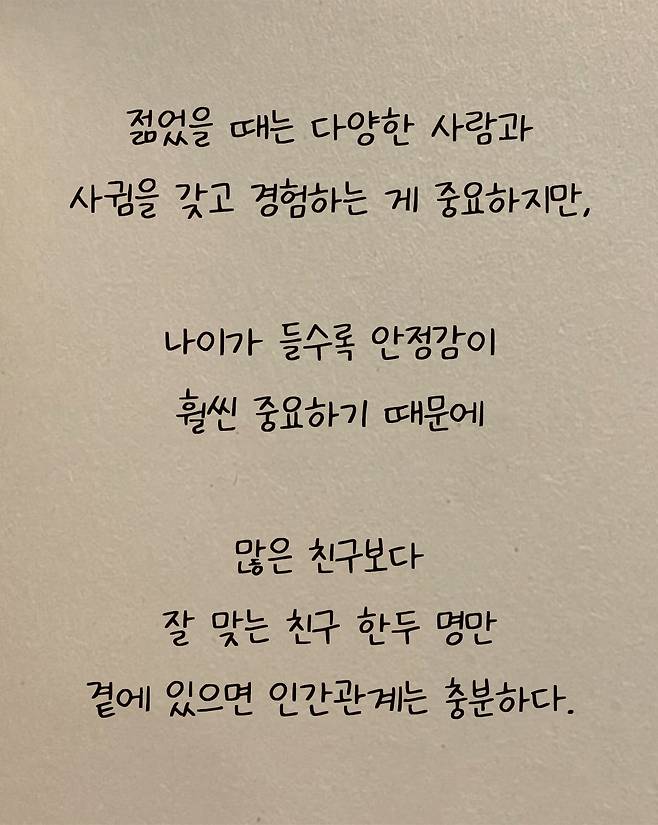 젊었을 때는 다양한 사람과
사귐을 갖고 경험하는 게 중요하지만,
나이가 들수록 안정감이
훨씬 중요하기 때문에
많은 친구보다
잘 맞는 친구 한두 명만
곁에 있으면 인간관계는 충분하다.